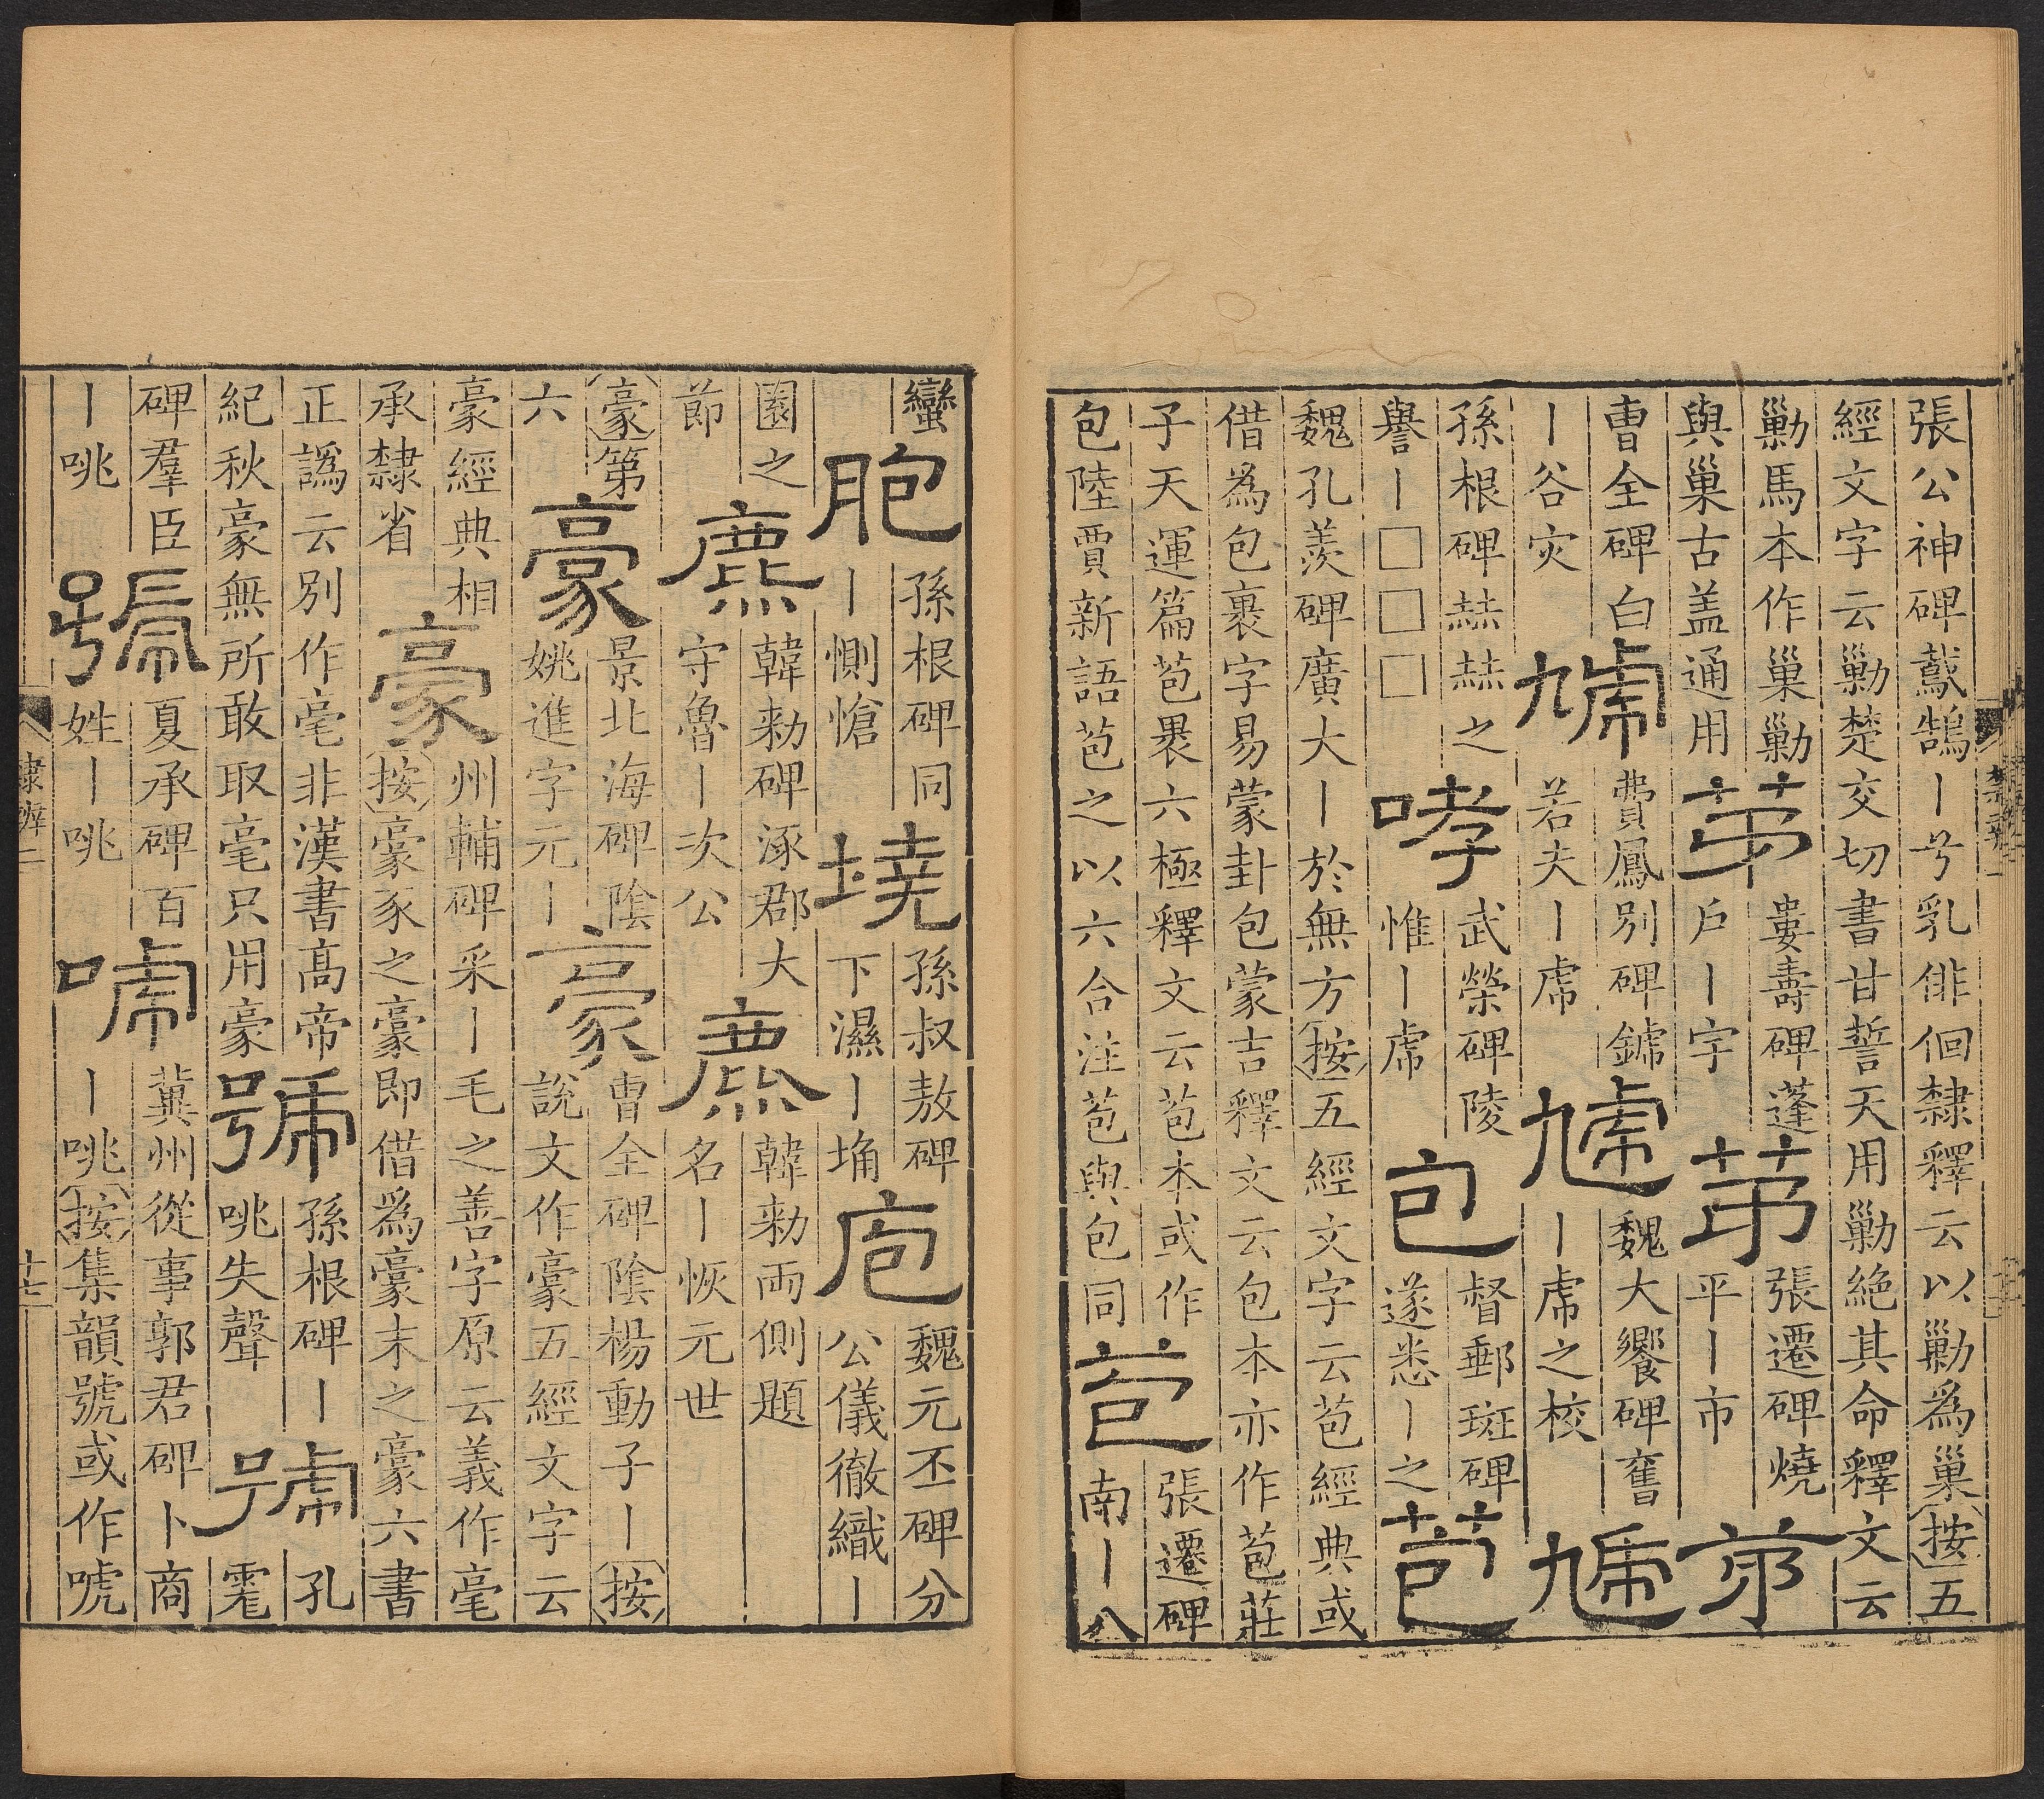 張公神碑鷰鵠丨兮乳俳佪隸釋云以勦爲巢按五
經文字云勦楚交切書甘誓天用勦絕其命釋文云
勦馬本作巢勦
與巢古盖通用
茅
婁壽碑蓬
戶丨宇
茅
張遷碑燒
平丨市
茅
曹全碑白
丨谷灾
虓
費鳳別碑鏬
若夫丨虎
虓
魏大饗碑奮
丨虎之校
虓
孫根碑赫赫之
譽丨□□□
哮
武榮碑陵
惟丨虎
包
督郵斑碑
遂悉丨之
苞
魏孔羨碑廣大丨於無方按五經文字云苞經典或
借爲包裹字易蒙卦包蒙吉釋文云包本亦作苞莊
子天運篇苞裹六極釋文云苞本或作
包陸賈新語苞之以六合注苞與包同
苞
張遷碑
南丨八
蠻
胞
孫根碑同
丨惻愴
墝
孫叔敖碑
下濕丨埆
庖
魏元丕碑分
公儀徹織丨
園之
節
麃
韓勑碑涿郡大
守魯丨次公
麃
韓勑兩側題
名丨恢元世
豪第
六
豪
景北海碑陰
姚進字元丨
豪
曹全碑陰楊動子丨按
說文作豪五經文字云
豪經典相
承隸省
豪
州輔碑采丨毛之善字原云義作毫
按豪豕之豪即借爲豪末之豪六書
正譌云別作毫非漢書高帝
紀秋豪無所敢取毫只用豪
號
孫根碑丨
咷失聲
號
孔
碑羣臣
丨咷
號
夏承碑百
姓丨咷
唬
冀州從事郭君碑卜商
丨咷按集韻號或作唬
隸辨二
十七